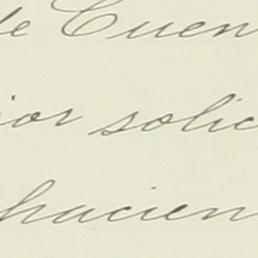 de Cuen
ior solic
hacien